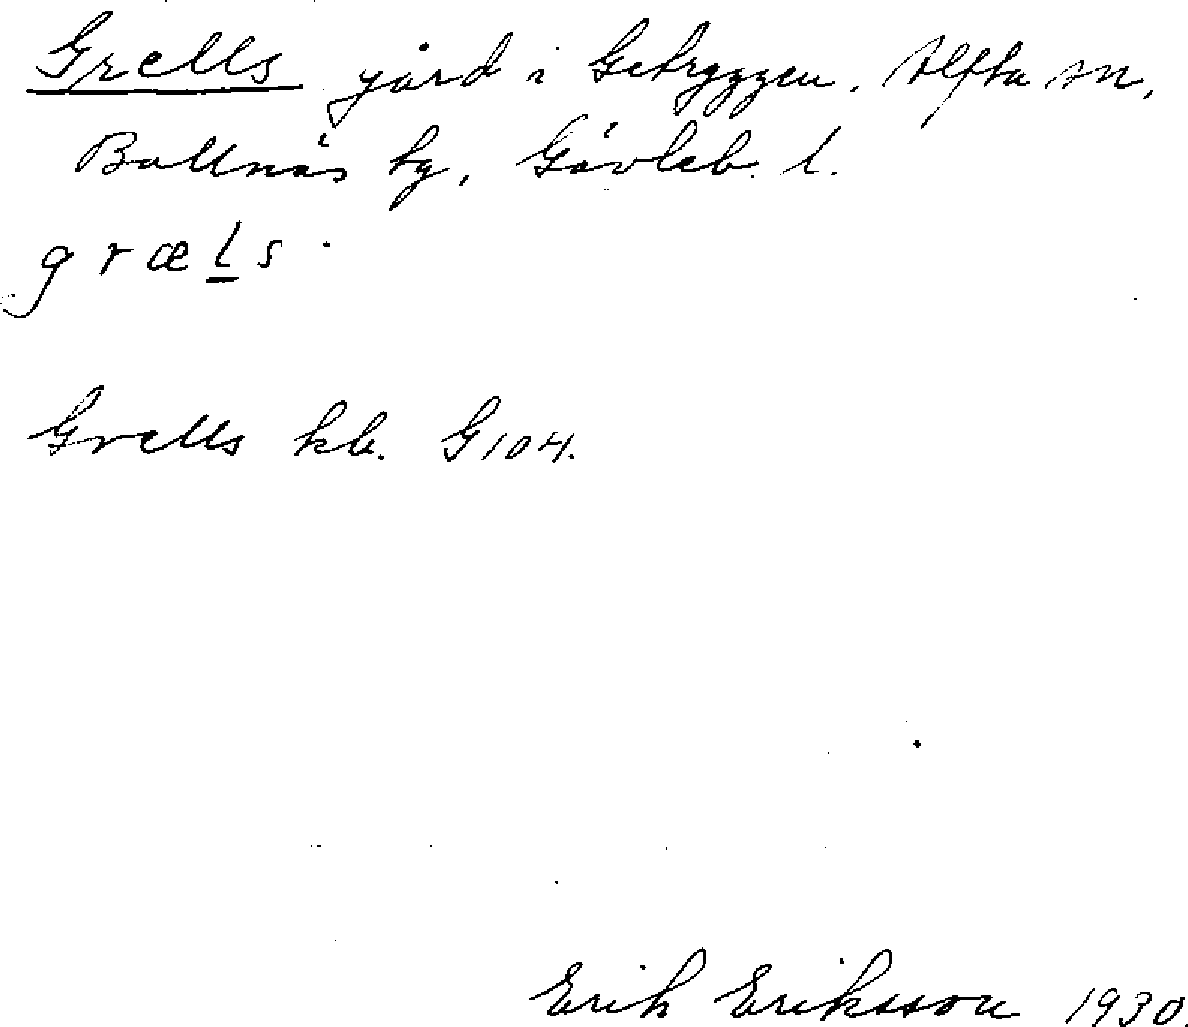 Grells gård i Getryggen, Alfta sn,
Bollnäs tg, Gävleb. l.
græls.
Grells kb. G 104.
Erik Eriksson 1930.